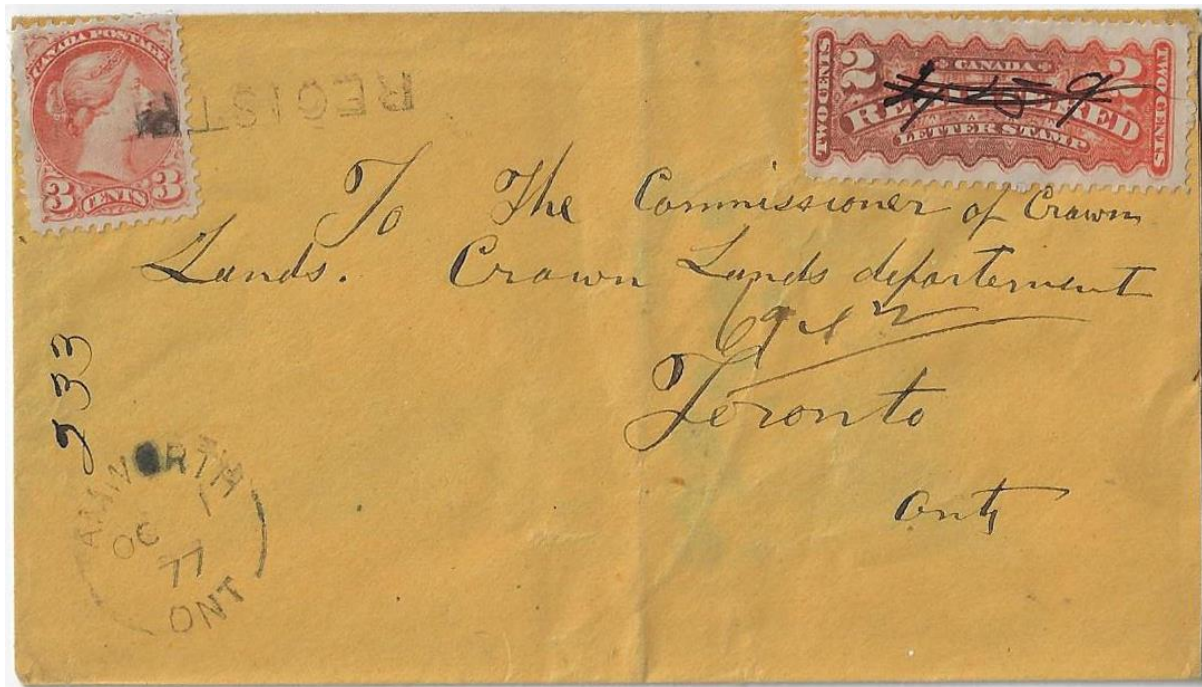 CANADA POSTAGE
3 CENTS 3
REGISTE
TWO CENTS
2 CANADA 2
REGISTERED
LETTER STAMP
TWO CENTS
To The Commissioner of Crown
Lands. Crown Lands departement
Toronto
Ont
533
OC 1
77
ONT